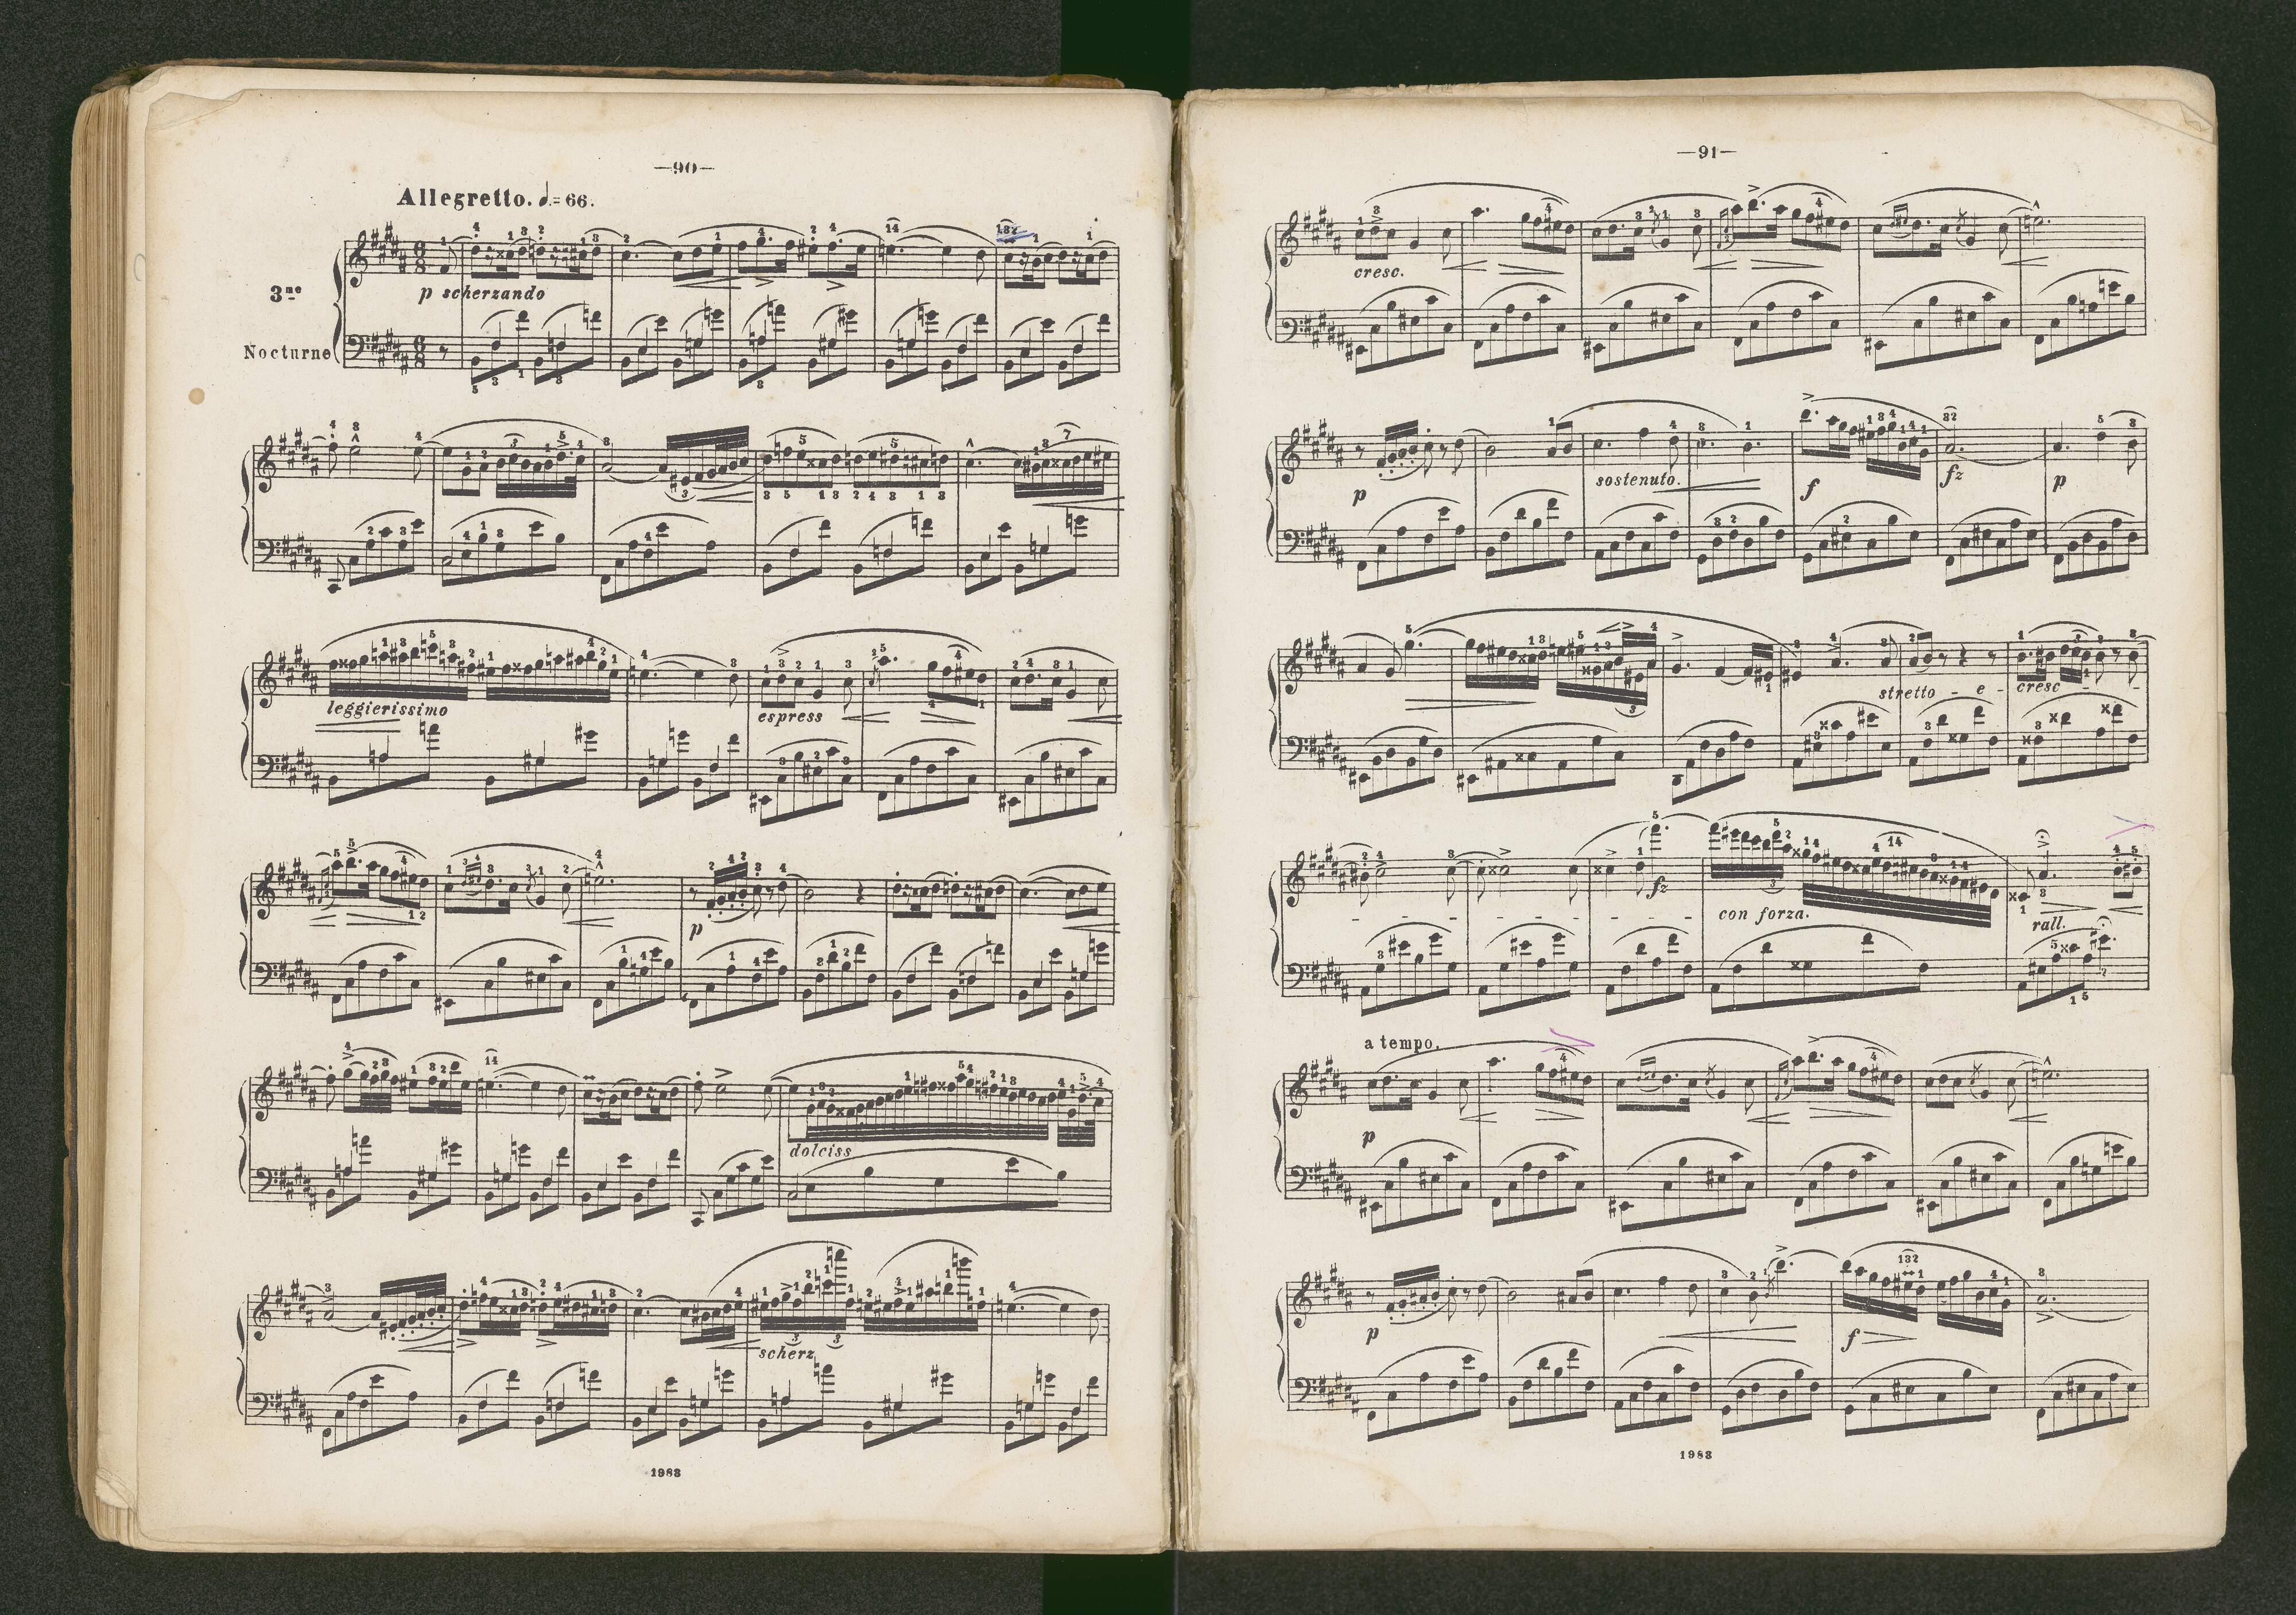 —90—
Allegretto. 𝅗𝅥. = 66.
3ne
Nocturne
p scherzando
leggierissimo
espress
p
dolciss
scherz
1983
—91—
cresc.
p
sostenuto.
f
fz
p
stretto - e - cresc - -
fz
con forza.
rall.
a tempo.
p
p
f
1983